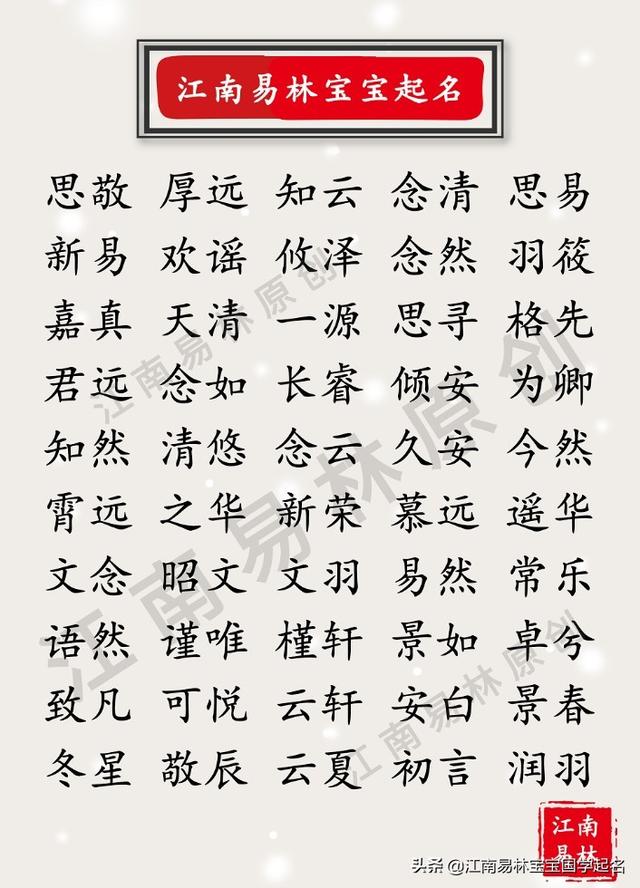 江南易林宝宝起名
思敬 厚远 知云 念清 思易
新易 欢谣 攸泽 念然 羽筱
嘉真 天清 一源 思寻 格先
君远 念如 长睿 倾安 为卿
知然 清悠 念云 久安 今然
霄远 之华 新荣 慕远 遥华
文念 昭文 文羽 易然 常乐
语然 谨唯 槿轩 景如 卓兮
致凡 可悦 云轩 安白 景春
冬星 敬辰 云夏 初言 润羽
江南易林原创
江南易林原创
江南易林原创
江南
易林
头条 @江南易林宝宝国学起名